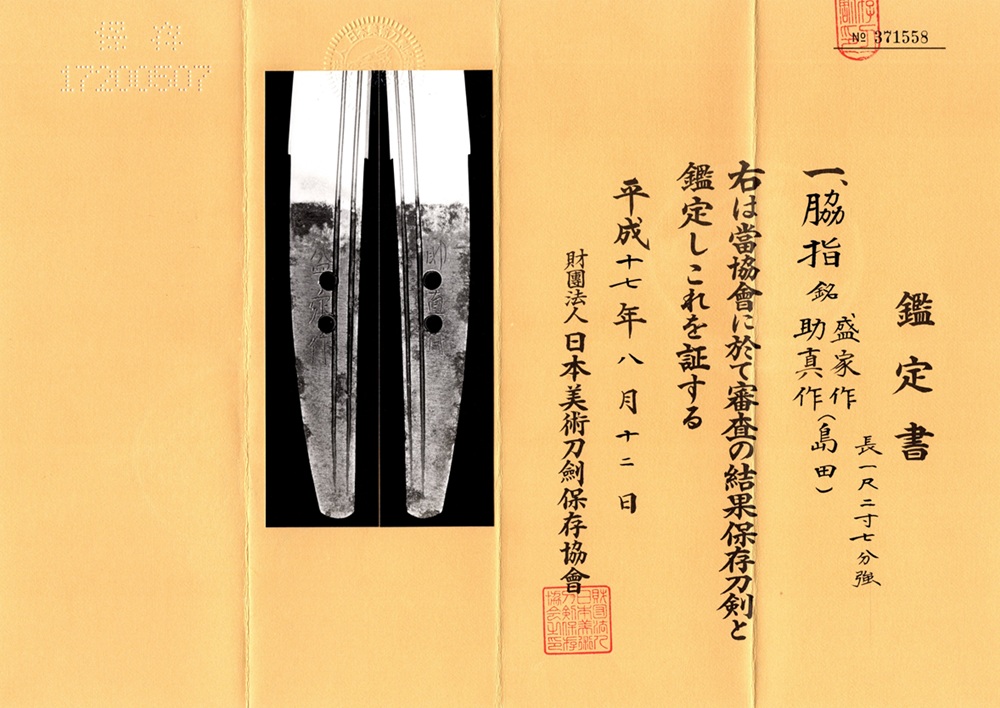 鑑定書
一、脇指 銘 盛家作
助真作(島田)
長一尺二寸七分強
右は當協會に於て審査の結果保存刀剣と
鑑定しこれを証する
平成十七年八月十二日
財團法人日本美術刀劍保存協會
№ 371558
保存
17200507